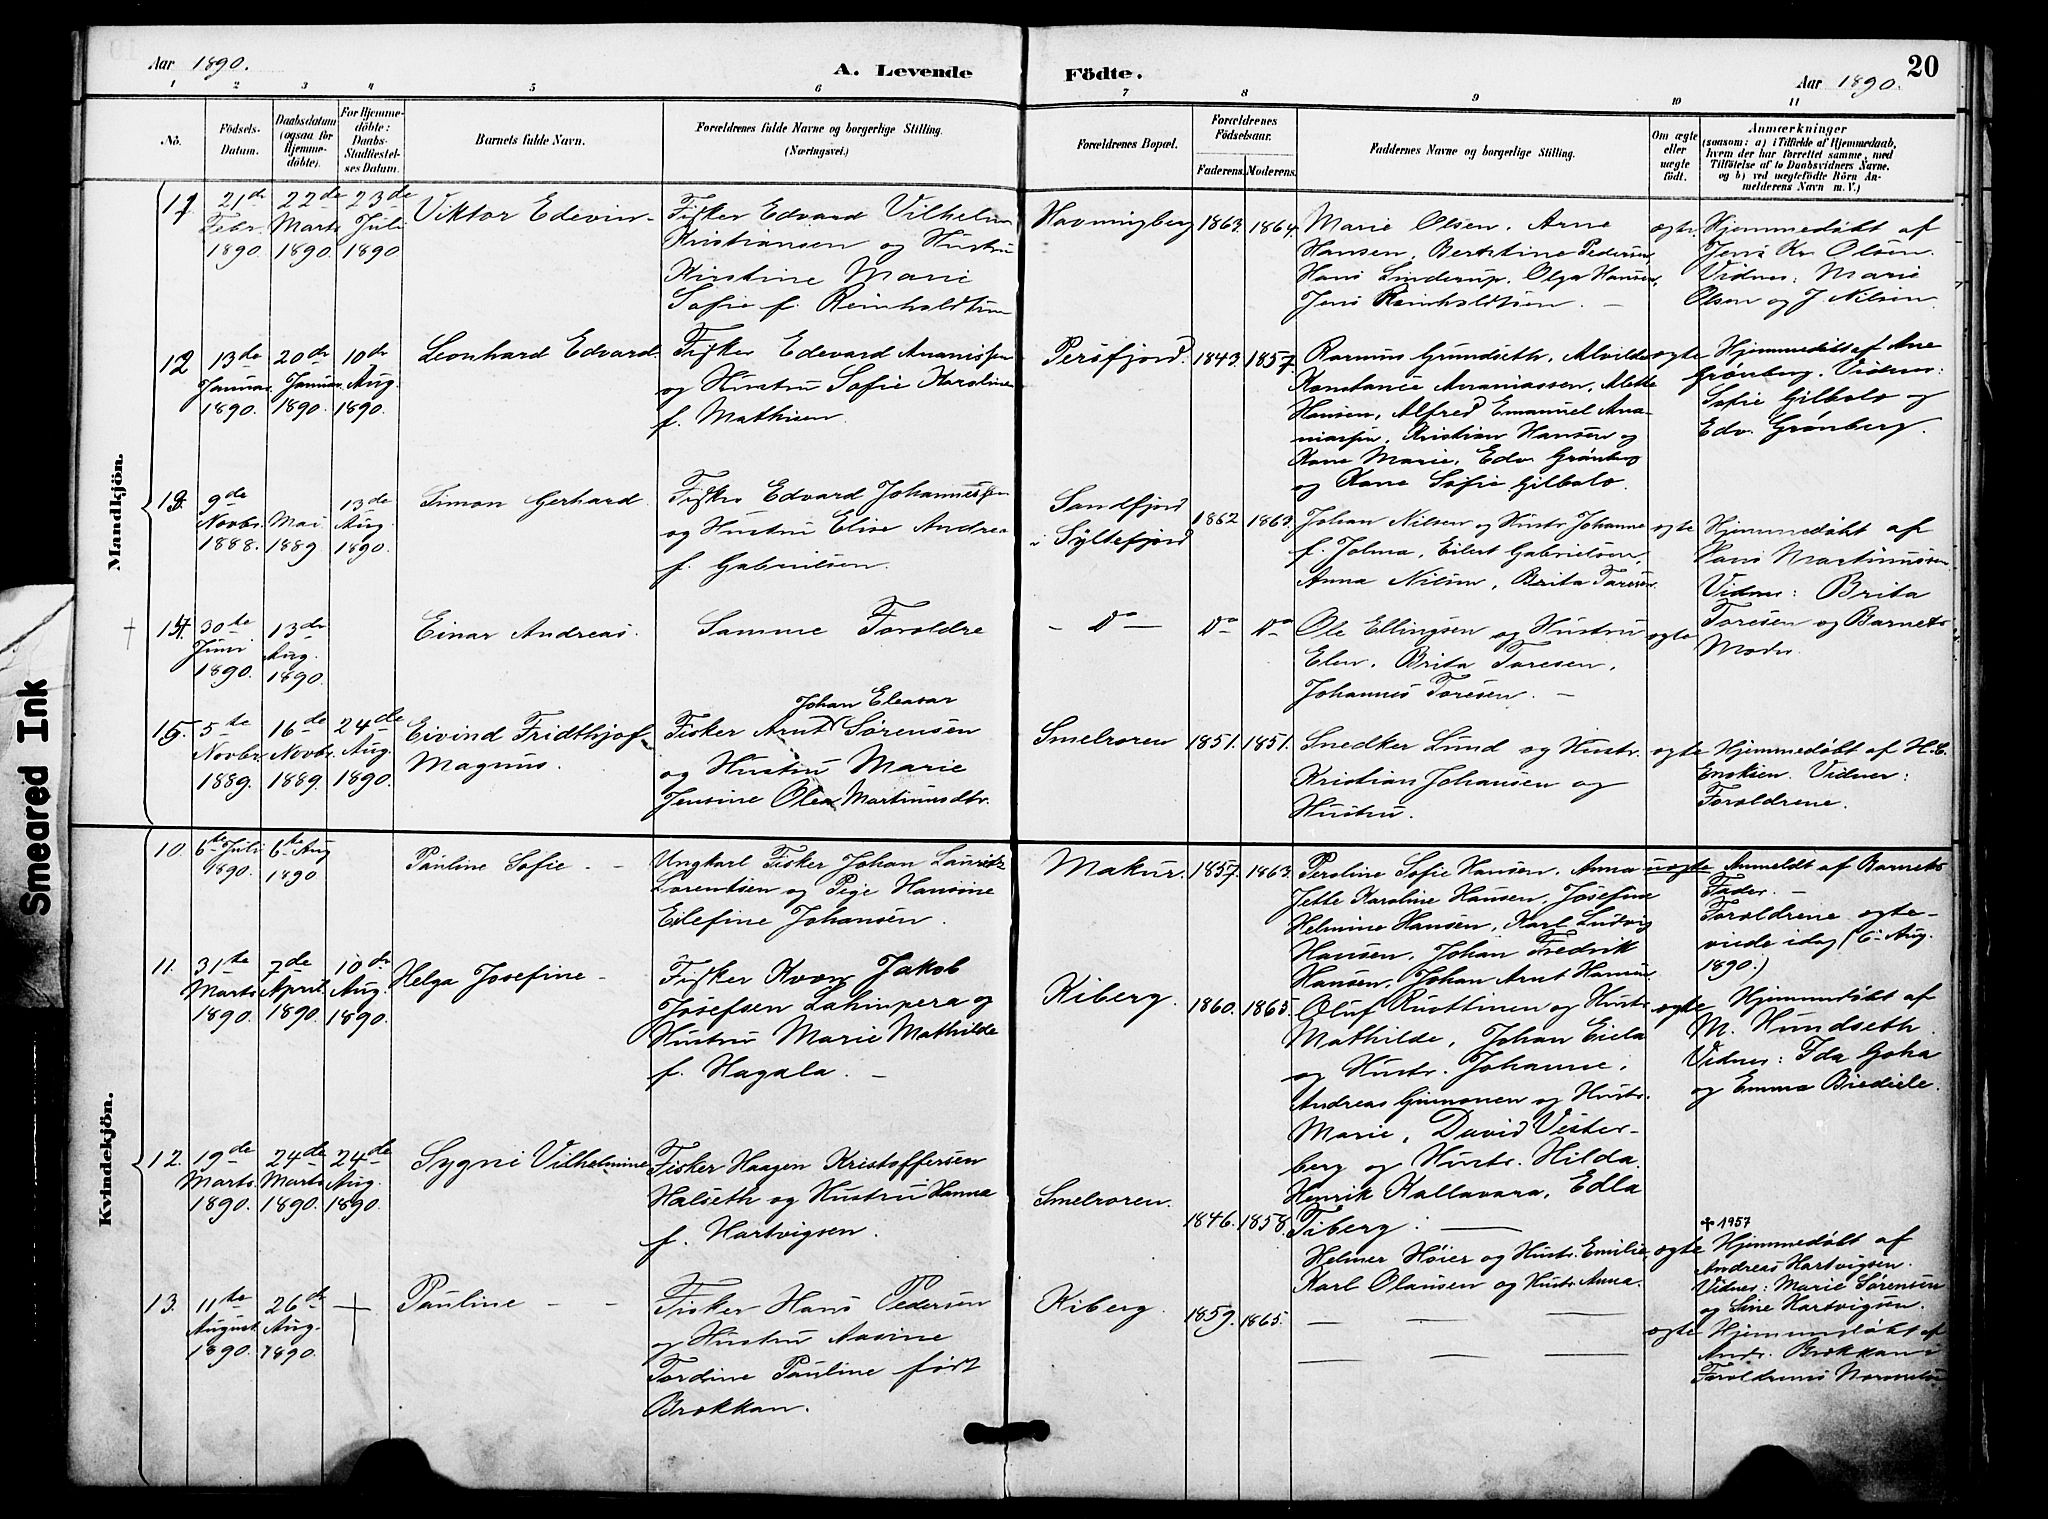 Aar 1890.
A. Levende
Födte.
Aar 1890.
20
1 2 3 4 5 6 7 8 9 10 11
No.
Födsels-
Datum.
Daabsdatum
(ogsaa for
Hjemme-
döbte).
For Hjemme-
döbte:
Daabs-
Stadfæstel-
ses Datum.
Barnets fulde Navn.
Forældrenes fulde Navne og borgerlige Stilling.
(Næringsvei.)
Forældrenes Bopæl.
Forældrenes
Födselsaar.
Faderens. Moderens.
Faddernes Navne og borgerlige Stilling.
Om ægte
eller
uægte
födt.
Anmærkninger
(saasom: a) i Tilfælde af Hjemmedaab,
hvem der har forrettet samme, med
Tilföielse af to Daabsvidners Navne.
og b) ved uægtefödte Börn An-
melderens Navn m. V.)
Mandkjön.
11.
21de
Febr.
1890
22de
Marts
1890
23de
Juli
1890
Viktor Edevin
Fisker Edvard Vilhelm
Kristiansen og Hustru
Kirstine Marie
Sofie f. Reinholdtsen
Havningberg
1863. 1864.
Marie Olsen, Arne
Hansen, Berntine Pedersen,
Hans Sinderup, Olga Hansen,
Jens Reinholdtsen.
ægte
Hjemmedøbt af
Jens Kr. Olsen.
Vidner: Marie
Olsen og J. Nilsen
12
13de
Januar
1890.
20de
Januar
1890.
10de
Aug.
1890.
Leonhard Edvard
Fisker Edevard Ananissen
og Hustru Sofie Karoline
f. Mathisen.
Persfjord.
1843. 1857
Rasmus Gundseth, Alvilde
Konstance Ananiassen, Alette
Hansen, Alfred Emanuel Ana-
niassen, Kristian Hansen og
Kone Marie, Edv. Grønberg
og Kone Sofie Gilbolo.
ægte
Hjemmedøbt af Ane
Grønberg. Vidner:
Sofie Gilbolo og
Edv. Grønberg.
13.
9de
Novbr.
1888.
Mai
1889
13de
Aug.
1890.
Simon Gerhard
Fisker Edvard Johannessen
og Hustru Elise Andrea
f. Gabrielsen.
Sandfjord
i Syltefjord
1862 1863.
Johan Nilsen og Hustr. Johanne
f. Jolma, Eilert Gabrielsen,
Anna Nilsen, Brita Toresen.
ægte
Hjemmedøbt af
Hans Martinussen
Vidner: Brita
Toresen og Barnets
Moder.
† 14.
30te
Juni
1890.
13de
Aug.
1890.
Einar Andreas.
Samme Forældre
Do
Do Do
Ole Ellingsen og Hustru
Elen, Brita Toresen,
Johannes Toresen.
ægte
15.
5te
Novbr.
1889.
16de
Novbr.
1889.
24de
Aug.
1890.
Eivind Fridthjof
Magnus.
Johan Eleasar
Fisker Arnt Sørensen
og Hustru Marie
Jensine Olea Martinusdtr.
Smelroren
1851. 1851.
Snedker Lund og Hustr.
Kristian Johansen og
Hustru.
ægte
Hjemmedøbt af H. C.
Enskien. Vidner:
Forældrene.
Kvindekjön.
10.
6te Juli
1890.
6te Aug
1890
Pauline Sofie
Ungkarl Fisker Johan Lauritz
Lorentsen og Pige Hansine
Eilefine Johansen.
Makur.
1857. 1863
Peroline Sofie Hansen, Anna
Jette Karoline Hansen, Josefine
Helmine Hansen, Karl Ludvig
Hansen, Johan Fredrik
Hansen, Johan Arnt Hansen
uægte
Anmeldt af Barnets
Fader.
Forældrene ægte-
viede idag (6te Aug.
1890.)
11.
31te
Marts
1890.
7de
April
1890.
10de
Aug.
1890.
Helga Josefine
Fisker Kvæn Jakob
Josefsen Lahinpera og
Hustru Marie Mathilde
f. Hagala.
Kiberg.
1860. 1865.
Oluf Ruottinen og Hustr.
Mathilde, Johan Eiela
og Hustr. Johanne,
Andreas Gunnonen og Hustr.
Marie, David Vester-
berg og Hustr. Hilda.
Henrik Kallavara, Edla
Tiberg:
ægte
Hjemmedøbt af
M. Hundseth.
Vidner: Ida Goha
og Emma Biediele.
12.
19de
Marts
1890.
24de
Marts
1890.
24de
Aug.
1890.
Sygni Vilhelmine
Fisker Haagen Kristoffersen
Halseth og Hustru Hanna
f. Hartvigsen.
Smelroren.
1846. 1858.
Helmer Høier og Hustr. Emilie,
Karl Olausen og Hustr. Anna.
ægte
✝ 1957
Hjemmedøbt af
Andreas Hartvigsen.
Vidner: Marie Sørensen
og Sine Hartvigsen.
13.
11te
August
1890.
26de
Aug.
1890.
†
Pauline
Fisker Hans Pedersen
og Hustru Aasine
Tordine Pauline født
Brokkan.
Kiberg.
1859. 1865.
ægte
Hjemmedøbt af
Andr. Brokkan i
Forældrenes Nærværelse
Smeared Ink